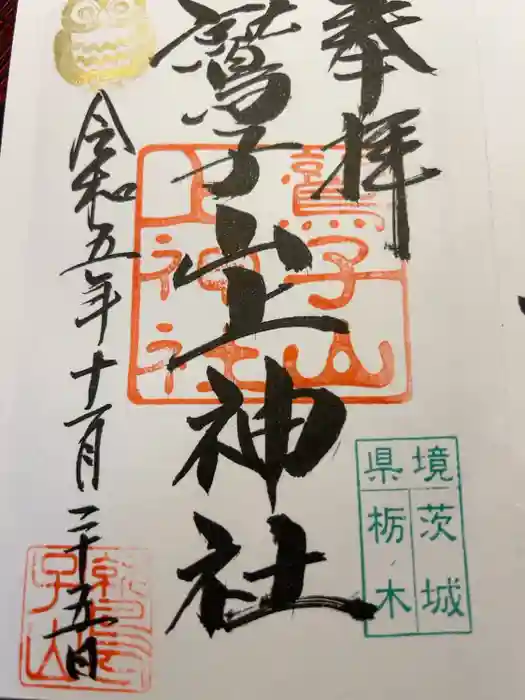 奉拝
鷲子山上神社
令和五年十一月二十五日
鷲子山
上神社
県境
茨城
栃木
鷲子山